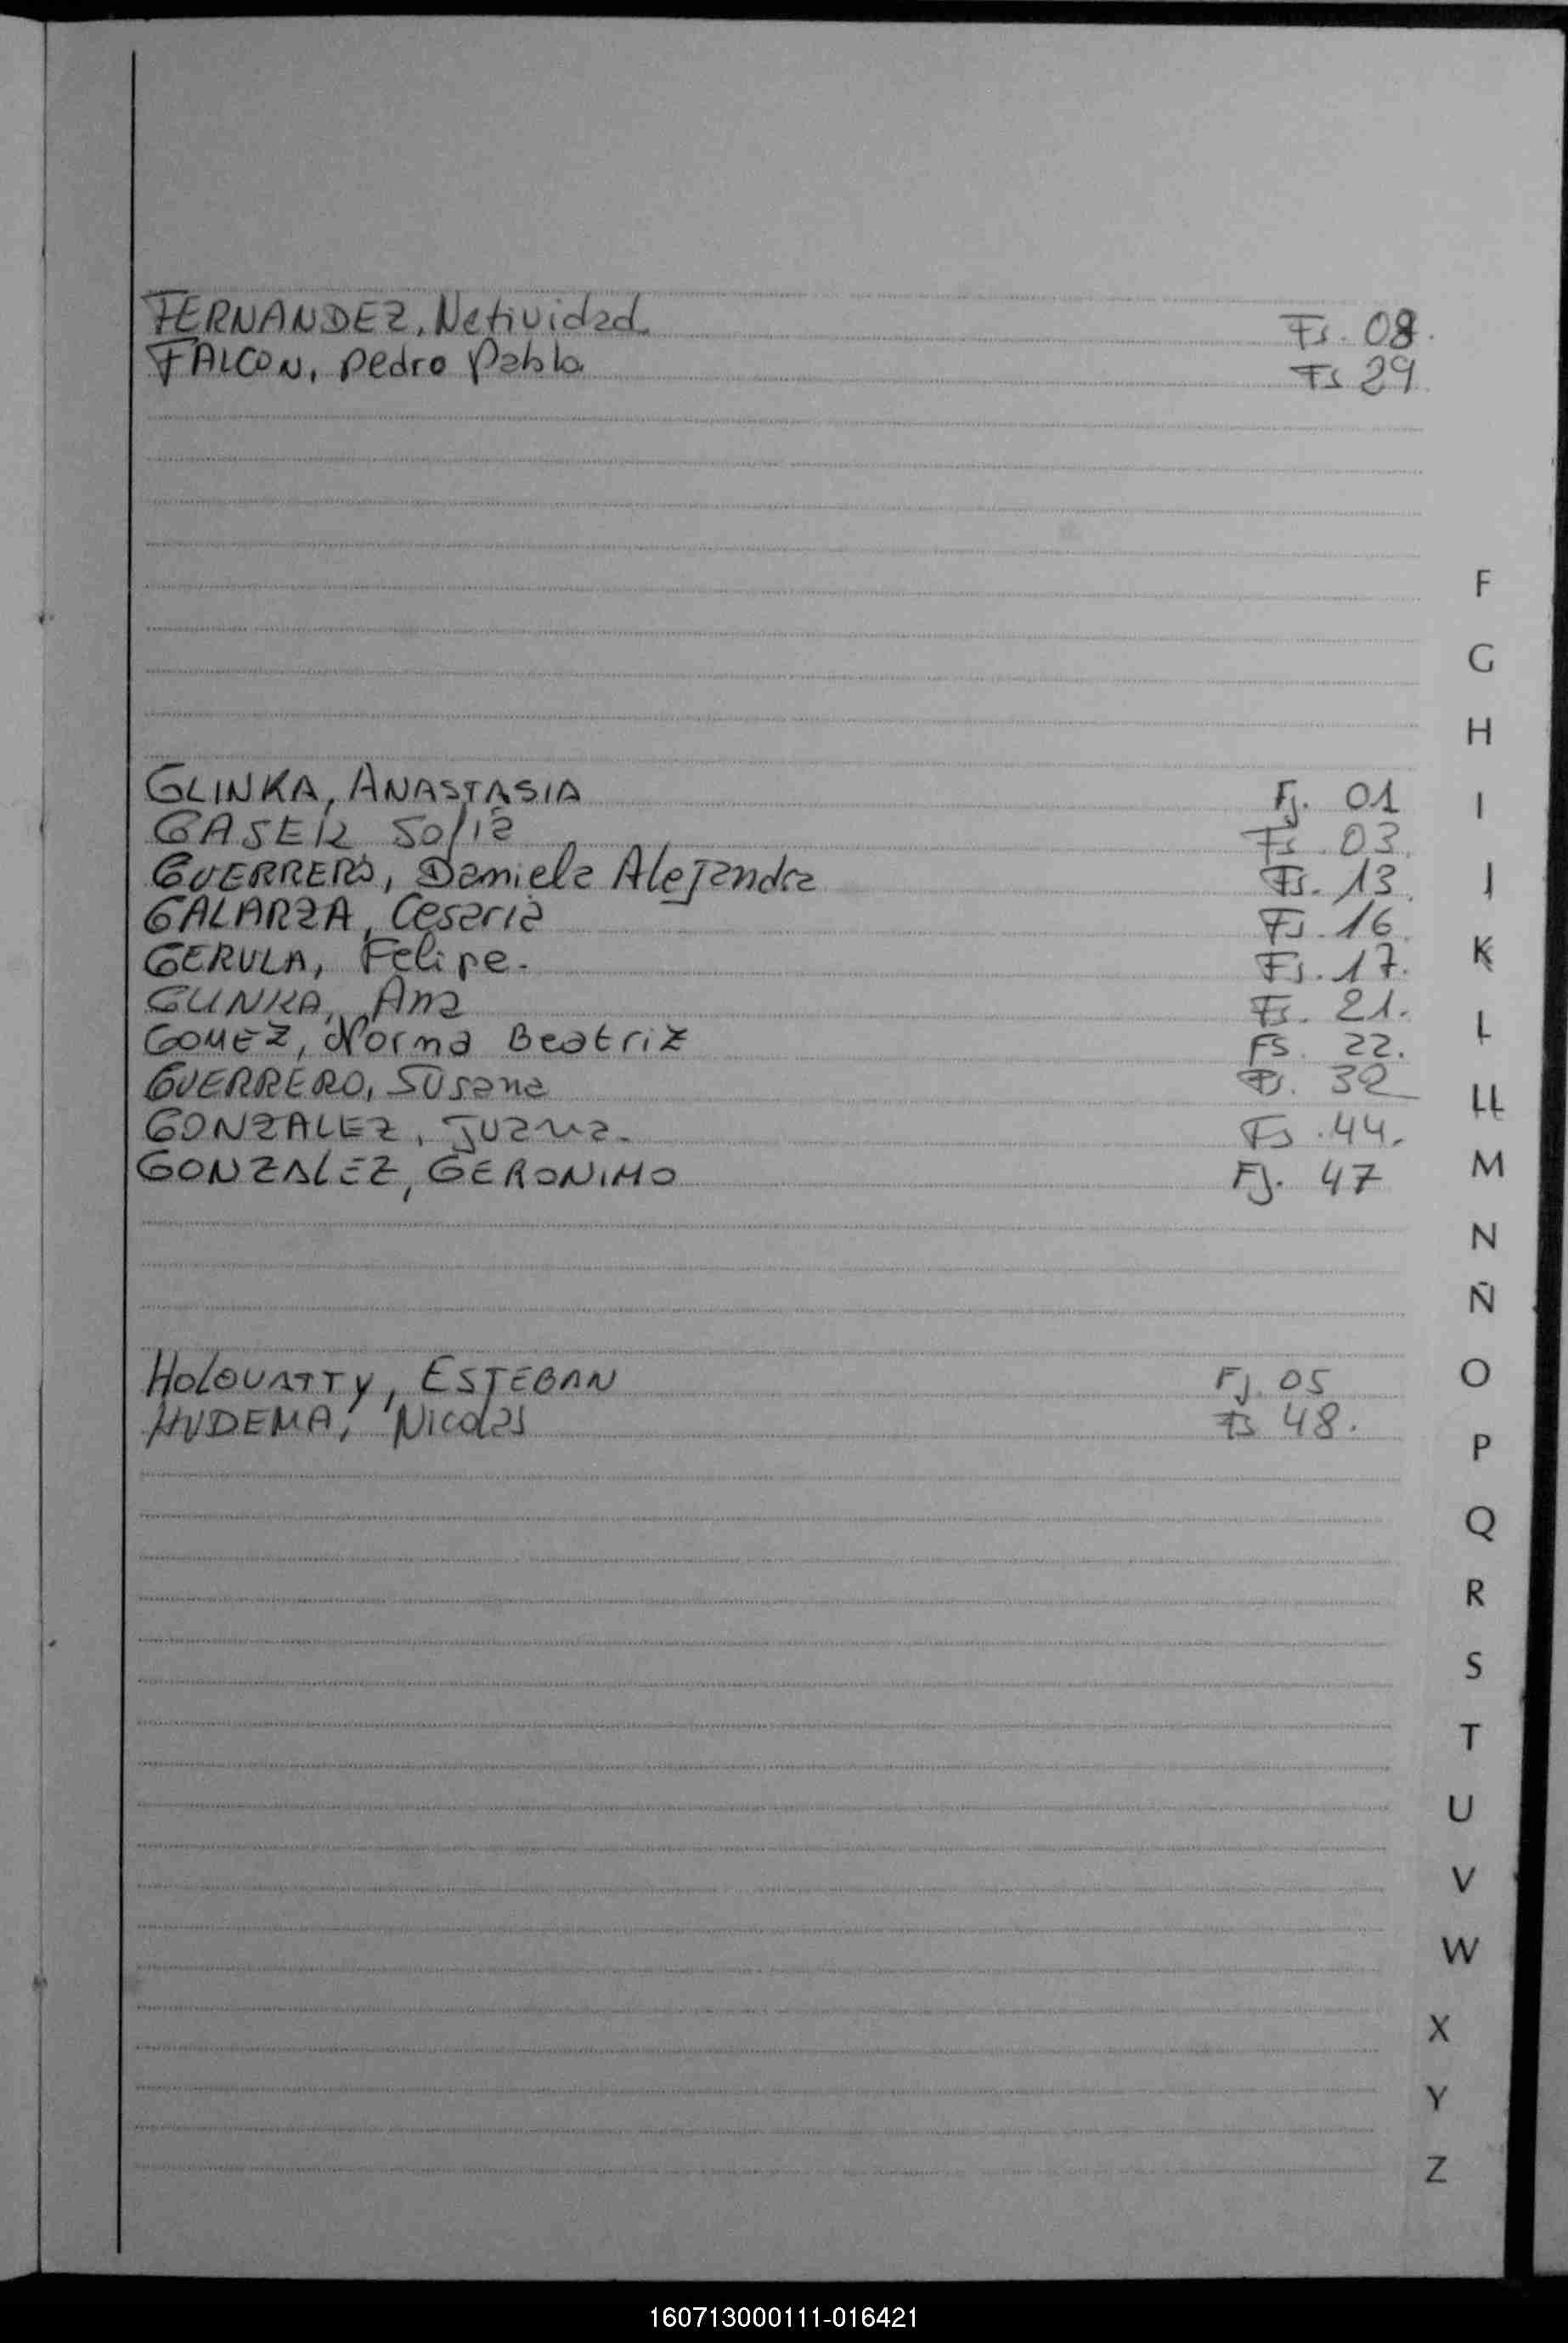 FERNANDEZ, Natividad. Fs. 08.
FALCON, Pedro Pablo Fs 29
F
G
H
GLINKA, ANASTASIA Fj. 01
I
GASER Sofia Fs. 03.
GUERRERO, Daniela Alejandra Fs. 13.
J
GALARZA, Cesaria Fs. 16.
GERULA, Felipe. Fs. 17.
K
GLINKA, Ana Fs. 21.
GOMEZ, Norma Beatriz FS. 22.
L
GUERRERO, Susana Fs. 32
LL
GONZALEZ, Juana. Fs. 44.
GONZALEZ, GERONIMO Fj. 47
M
N
Ñ
HOLOVATTY, ESTEBAN Fj. 05
O
HUDEMA, Nicolas Fs 48.
P
Q
R
S
T
U
V
W
X
Y
Z
160713000111-016421